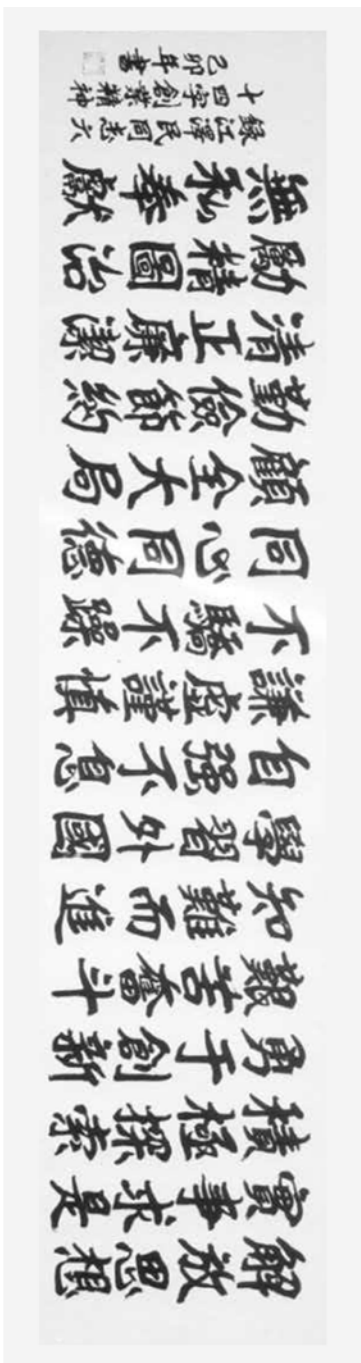 解放思想
實事求是
積極探索
勇于創新
艱苦奮斗
知難而進
學習外國
自强不息
謙虚謹慎
不驕不躁
同心同德
顧全大局
勤儉節約
清正廉潔
勵精圖治
無私奉獻
錄江澤民同志六
十四字創業精神
己卯年書